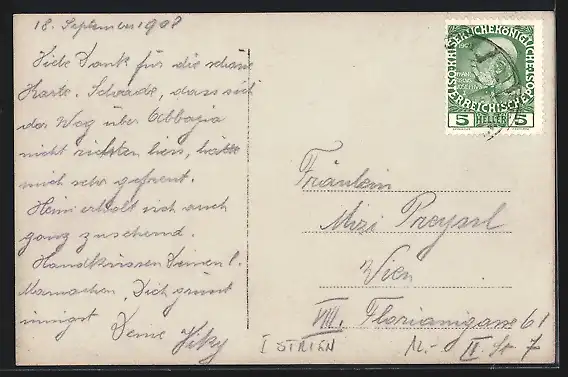 18. September 1908
Viele Dank für die schöne
Karte. Schade, dass sich
der Weg über Abbazia
nicht richten liess, hätte
mich sehr gefreut.
Heini erholt sich auch
ganz zusehend.
Handküssen Deiner l.
Mamachen, Dich grüsst
innigst
Deine Vicky
KAISERLICHEKÖNIGLICHE
ÖSTERREICHISCHE
5 HELLER 5
Fräulein
Mizi Preyssl
Wien
VIII. Florianigasse 61
II. St. 7
ISTRIEN 12.-